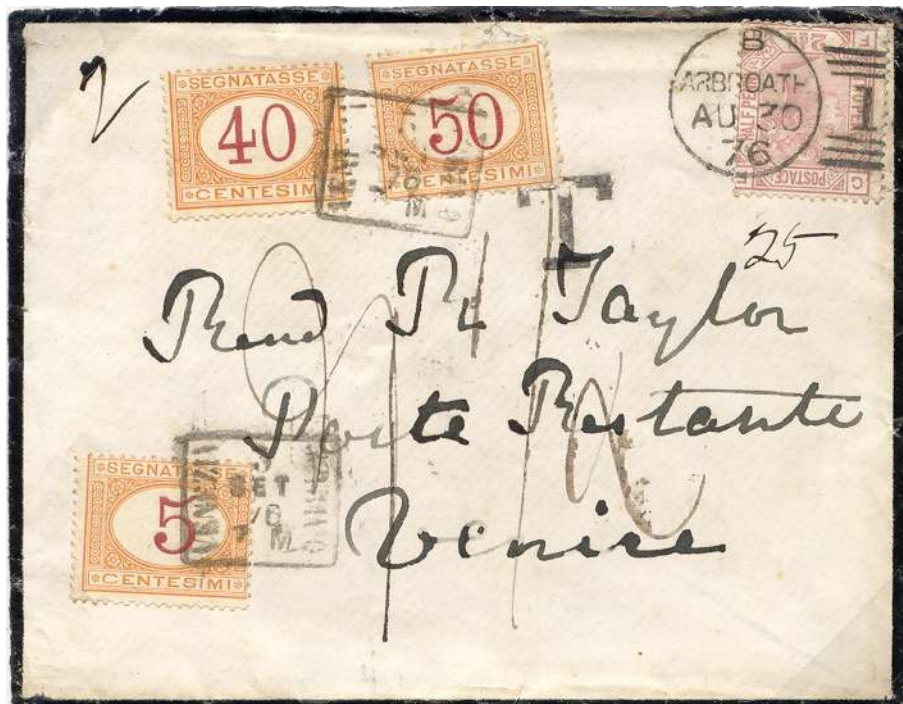 2
SEGNATASSE
40
CENTESIMI
SEGNATASSE
50
CENTESIMI
B
ARBROATH
AU 30
76
1
HALF PE
POSTAGE
F
C
T
25
Revd R Taylor
Poste Restante
Venice
SEGNATASSE
5
CENTESIMI
VENEZIA
SET
76
M